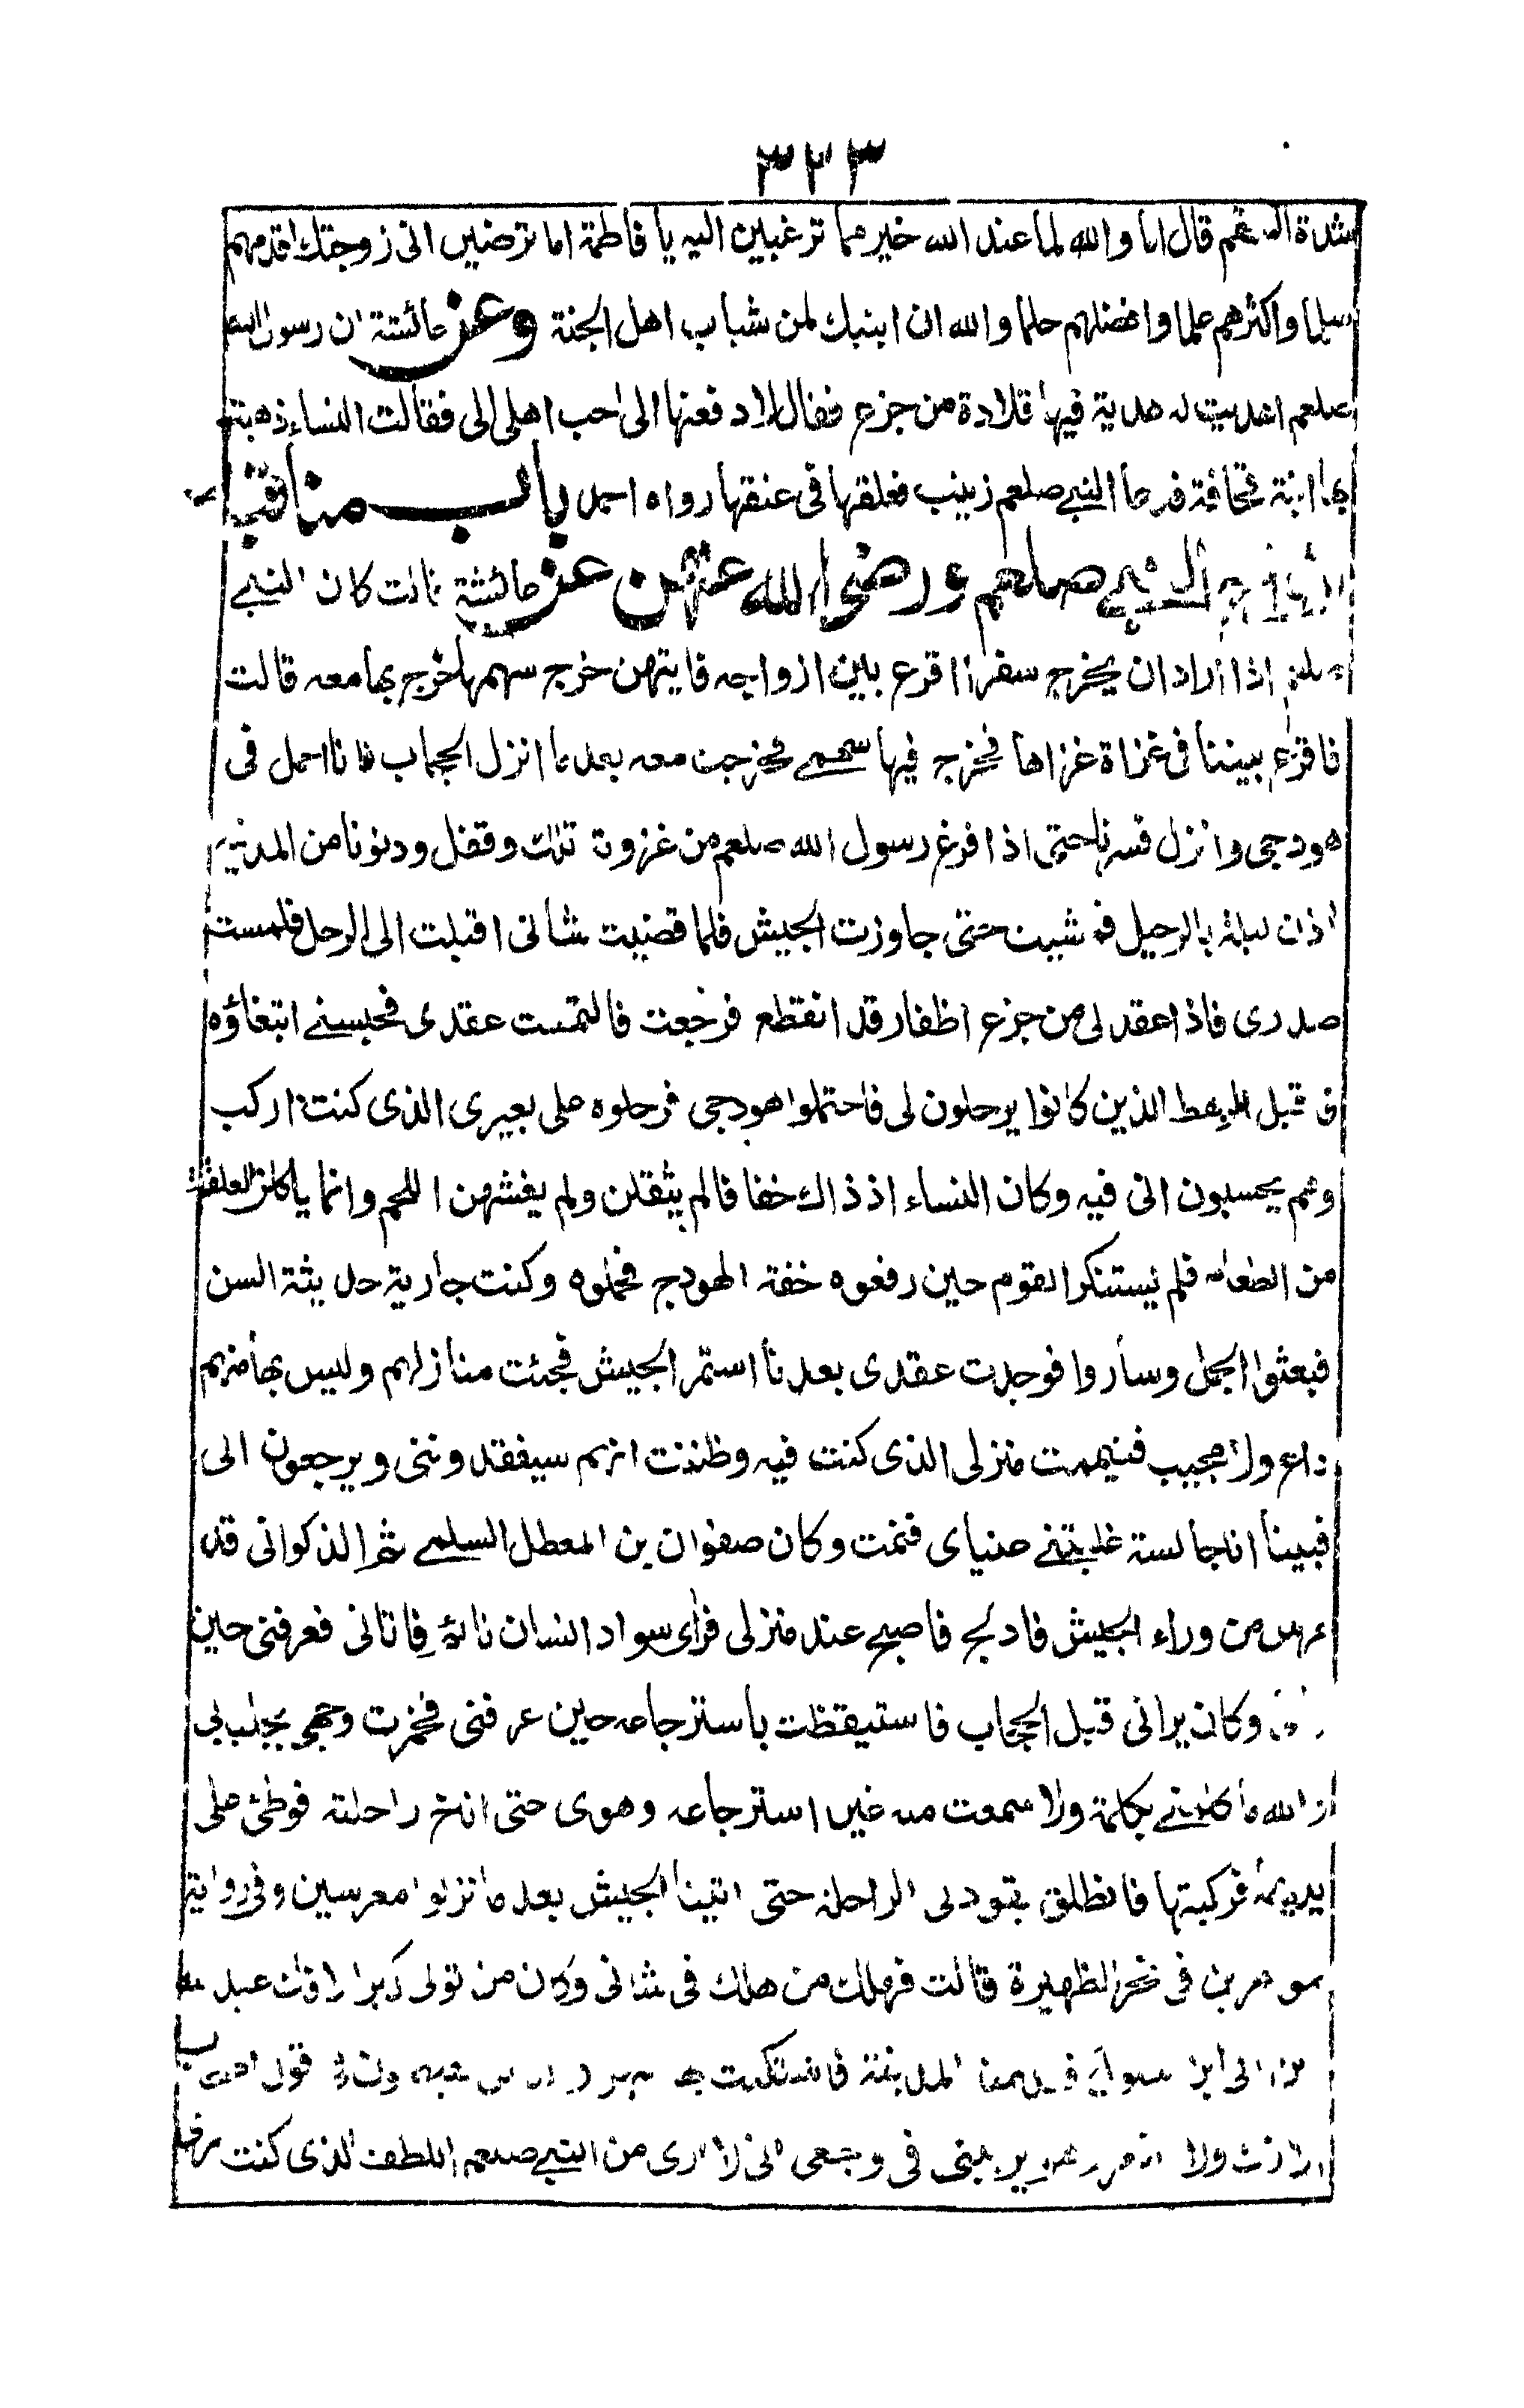 ٣٢٣
شدة السقم قال اما والله لما عند الله خير مما ترغبين اليه يا فاطمة اما ترضين انى زوجتك اقدمهم
سلما واكثرهم علما وافضلهم حلما والله ان ابنيك لمن شباب اهل الجنة وعن عائشة ان رسول الله
صلعم اهديت له هدية فيها قلادة من جزع فقال لادفعنها الى احب اهلى الى فقالت النساء ذهبت
بها ابنة قحافة فدعا النبى صلعم زينب فعلقها فى عنقها رواه احمد باب مناقب
النبى صلعم ورضى الله عنهن عن عائشة قالت كان النبى
صلعم اذا اراد ان يخرج سفرا اقرع بين ازواجه فايتهن خرج سهمها خرج بها معه قالت
فاقرع بيننا فى غزاة غزاها فخرج فيها سهمى فخرجت معه بعد ما انزل الحجاب فانا احمل فى
هودجى وانزل فسرنا حتى اذا فرغ رسول الله صلعم من غزوة تلك وقفل ودنونا من المدينة
اذن ليلة بالرحيل فمشيت حتى جاوزت الجيش فلما قضيت شانى اقبلت الى الرحل فلمست
صدرى فاذا عقد لى من جزع اظفار قد انقطع فرجعت فالتمست عقدى فحبسنى ابتغاؤه
فاقبل الرهط الذين كانوا يرحلون لى فاحتملوا هودجى فرحلوه على بعيرى الذى كنت اركب
وهم يحسبون انى فيه وكان النساء اذ ذاك خفافا لم يثقلن ولم يغشهن اللحم وانما ياكلن العلقة
من الطعام فلم يستنكر القوم حين رفعوه خفة الهودج فحملوه وكنت جارية حديثة السن
فبعثوا الجمل وساروا فوجدت عقدى بعد ما استمر الجيش فجئت منازلهم وليس بها منهم
داع ولا مجيب فتيممت منزلى الذى كنت فيه وظننت انهم سيفقدوننى ويرجعون الى
فبينا انا جالسة غلبتنى عيناى فنمت وكان صفوان بن المعطل السلمى ثم الذكوانى قد
عرس من وراء الجيش فادلج فاصبح عند منزلى فراى سواد انسان نائم فاتانى فعرفنى حين
وكان يرانى قبل الحجاب فاستيقظت باسترجاعه حين عرفنى فخمرت وجهى بجلبابى
الله ما كلمنى بكلمة ولا سمعت منه غير استرجاعه وهوى حتى اناخ راحلته فوطئ على
يديها فركبتها فانطلق يقود بى الراحلة حتى اتينا الجيش بعد ما نزلوا معرسين وفى رواية
موغرين فى نحر الظهيرة قالت فهلك من هلك فى شانى وكان من تولى كبر الافك عبد الله
بن ابى ابن سلول فقدمنا المدينة فاشتكيت قول
يريبنى فى وجعى انى لا ارى من النبى صلعم اللطف الذى كنت